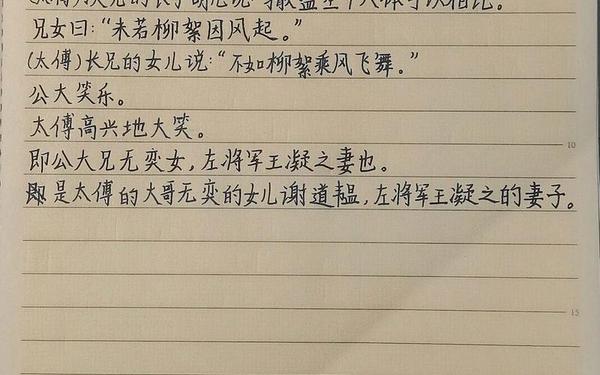 兄女曰：“未若柳絮因风起。”
(太傅)长兄的女儿说：“不如柳絮乘风飞舞。”
公大笑乐。
太傅高兴地大笑。
10
即公大兄无奕女，左将军王凝之妻也。
是太傅的大哥无奕的女儿谢道韫，左将军王凝之的妻子。
15